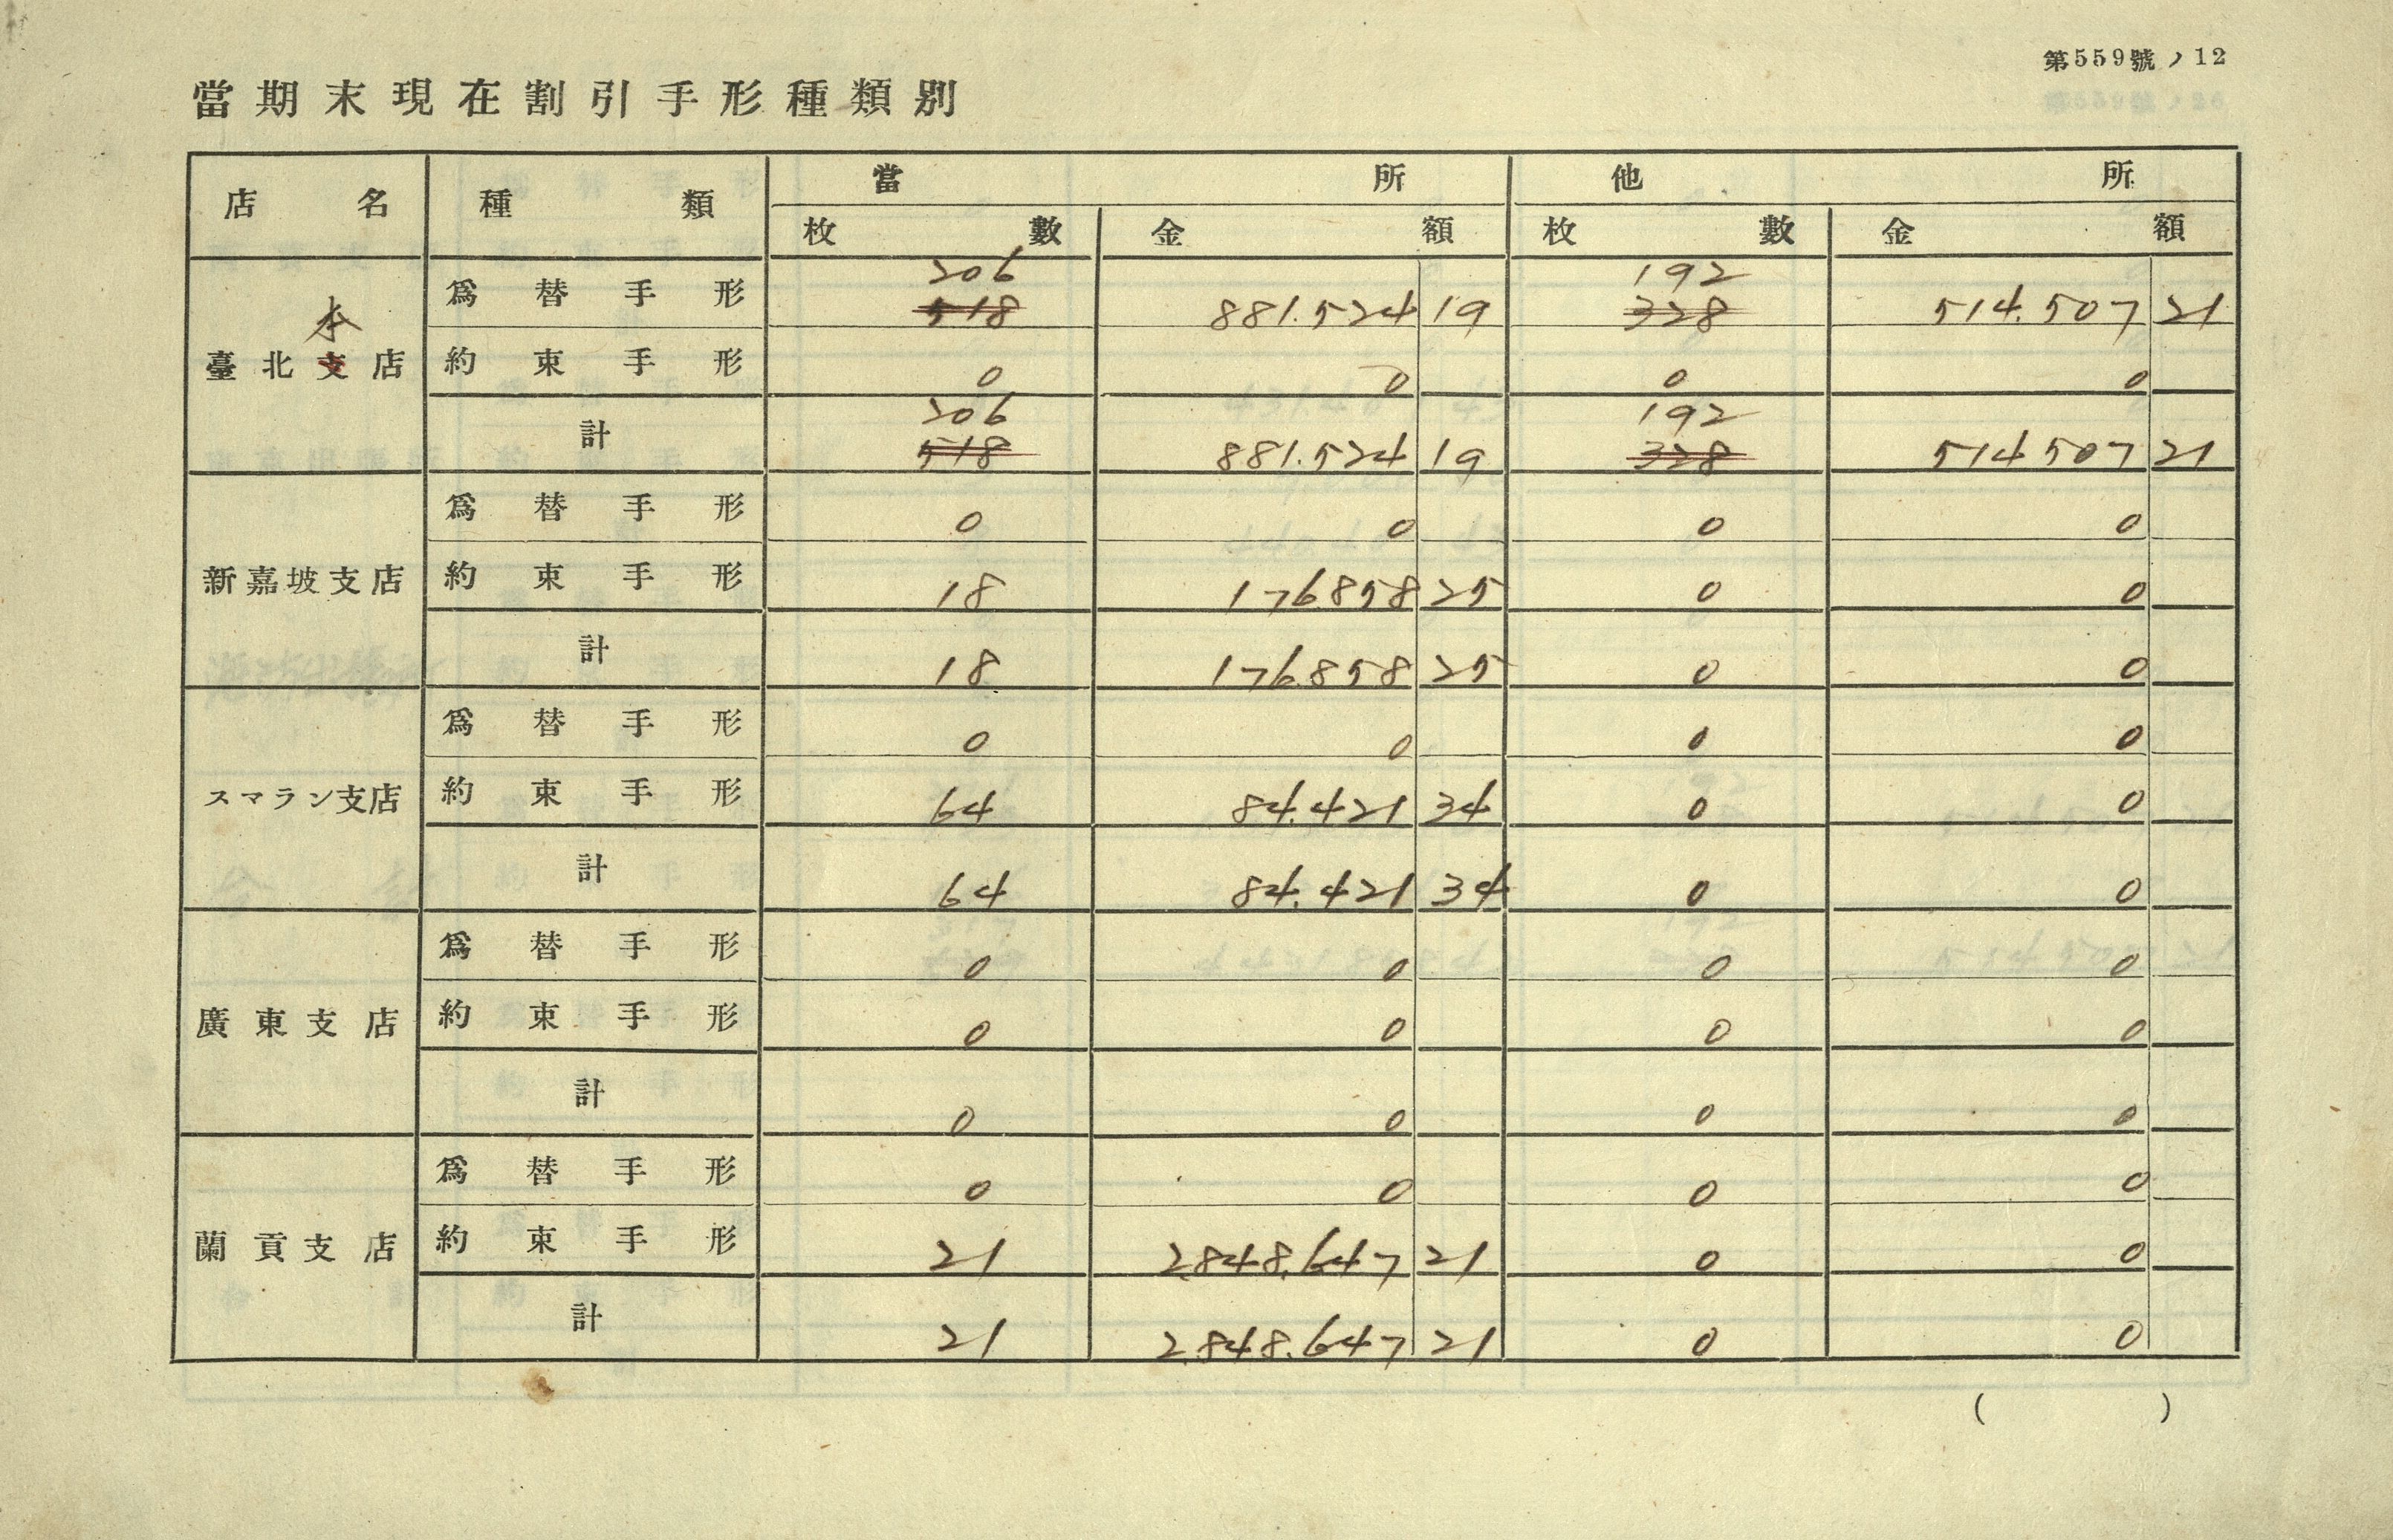 第559號ノ12
當期末現在割引手形種類別
店名 種類 當所 他所
枚數 金額 枚數 金額
206 192
爲替手形 518 881.524 19 328 514.507 21
本
臺北支店 約束手形 0 0 0 0
206 192
計 518 881.524 19 328 514 507 21
爲替手形 0 0 0 0
新嘉坡支店 約束手形 18 176.858 25 0 0
計 18 176.858 25 0 0
爲替手形 0 0 0 0
スマラン支店 約束手形 64 84.421 34 0 0
計 64 84.421 34 0 0
爲替手形 0 0 0 0
廣東支店 約束手形 0 0 0 0
計 0 0 0 0
爲替手形 0 0 0 0
蘭貢支店 約束手形 21 2.848.647 21 0 0
計 21 2.848.647 21 0 0
( )